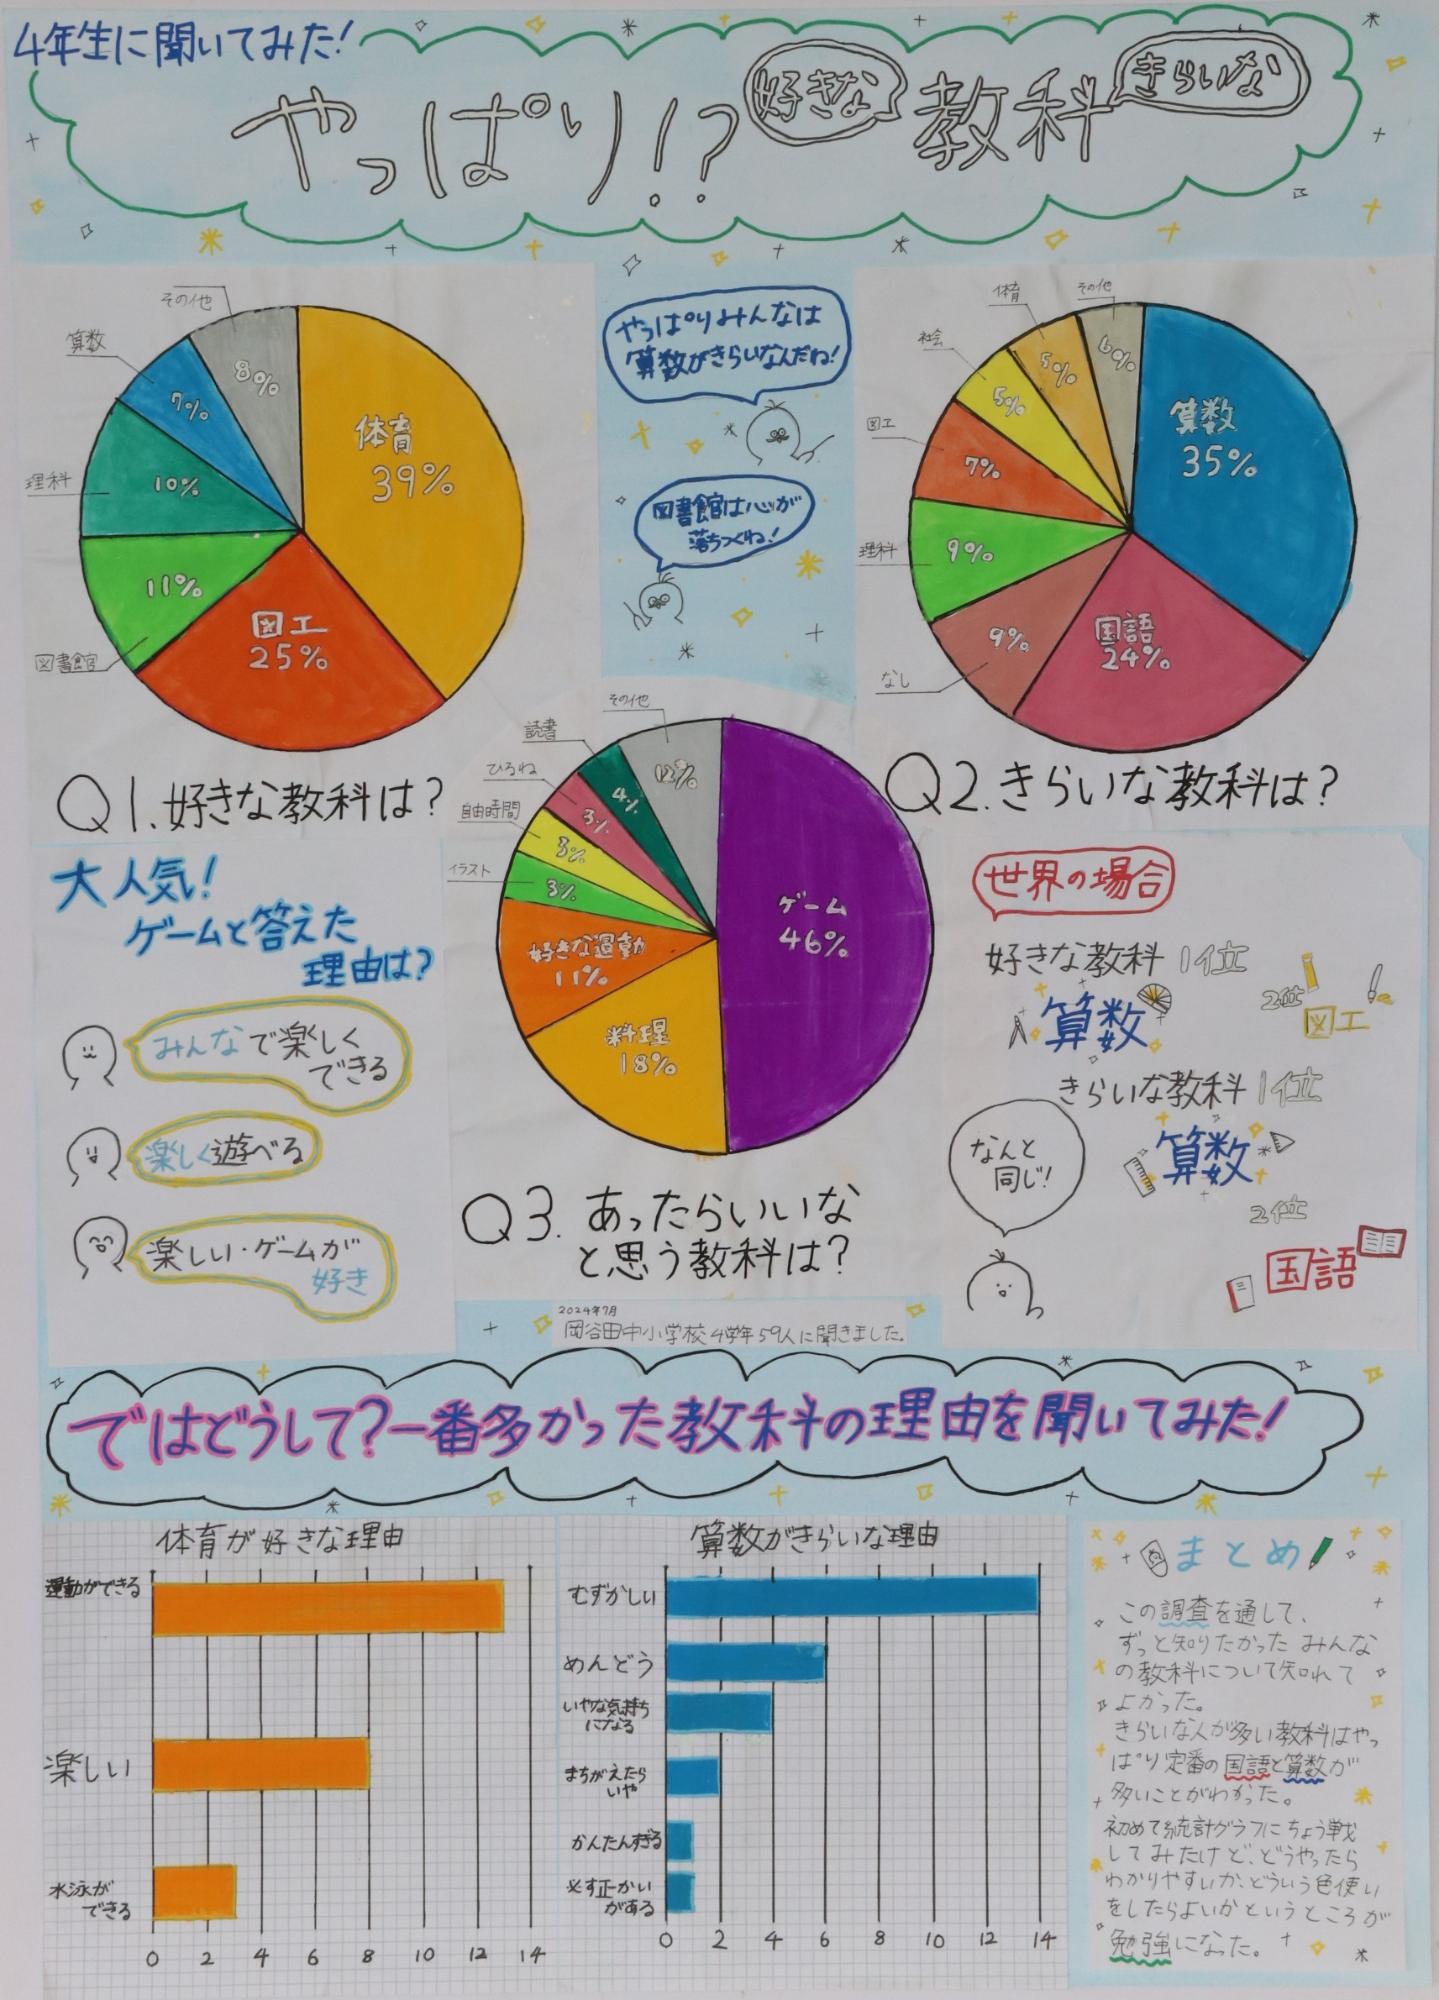 4年生に聞いてみた!
やっぱり!?好きな教科きらいな
その他
算数
理科
図書館
8%
7%
10%
11%
体育
39%
図工
25%
Q1.好きな教科は?
やっぱりみんなは
算数がきらいなんだね!
図書館は心が
落ちつくね!
体育
その他
社会
図工
理科
なし
6%
5%
5%
7%
9%
9%
算数
35%
国語
24%
Q2.きらいな教科は?
その他
読書
ひるね
自由時間
イラスト
12%
4%
3%
3%
3%
ゲーム
46%
好きな運動
11%
料理
18%
Q3.あったらいいな
と思う教科は?
大人気!
ゲームと答えた
理由は?
みんなで楽しく
できる
楽しく遊べる
楽しい・ゲームが
好き
世界の場合
好きな教科1位
算数
2位
図工
きらいな教科1位
算数
2位
国語
なんと
同じ!
2024年7月
岡谷田中小学校4学年59人に聞きました。
ではどうして?一番多かった教科の理由を聞いてみた!
体育が好きな理由
運動ができる
楽しい
水泳が
できる
0 2 4 6 8 10 12 14
算数がきらいな理由
むずかしい
めんどう
いやな気持ち
になる
まちがえたら
いや
かんたんすぎる
必ず正かい
がある
0 2 4 6 8 10 12 14
まとめ
この調査を通して、
ずっと知りたかったみんな
の教科について知れて
よかった。
きらいな人が多い教科はやっ
ぱり定番の国語と算数が
多いことがわかった。
初めて統計グラフにちょう戦
してみたけど、どうやったら
わかりやすいか、どういう色使い
をしたらよいかというところが
勉強になった。